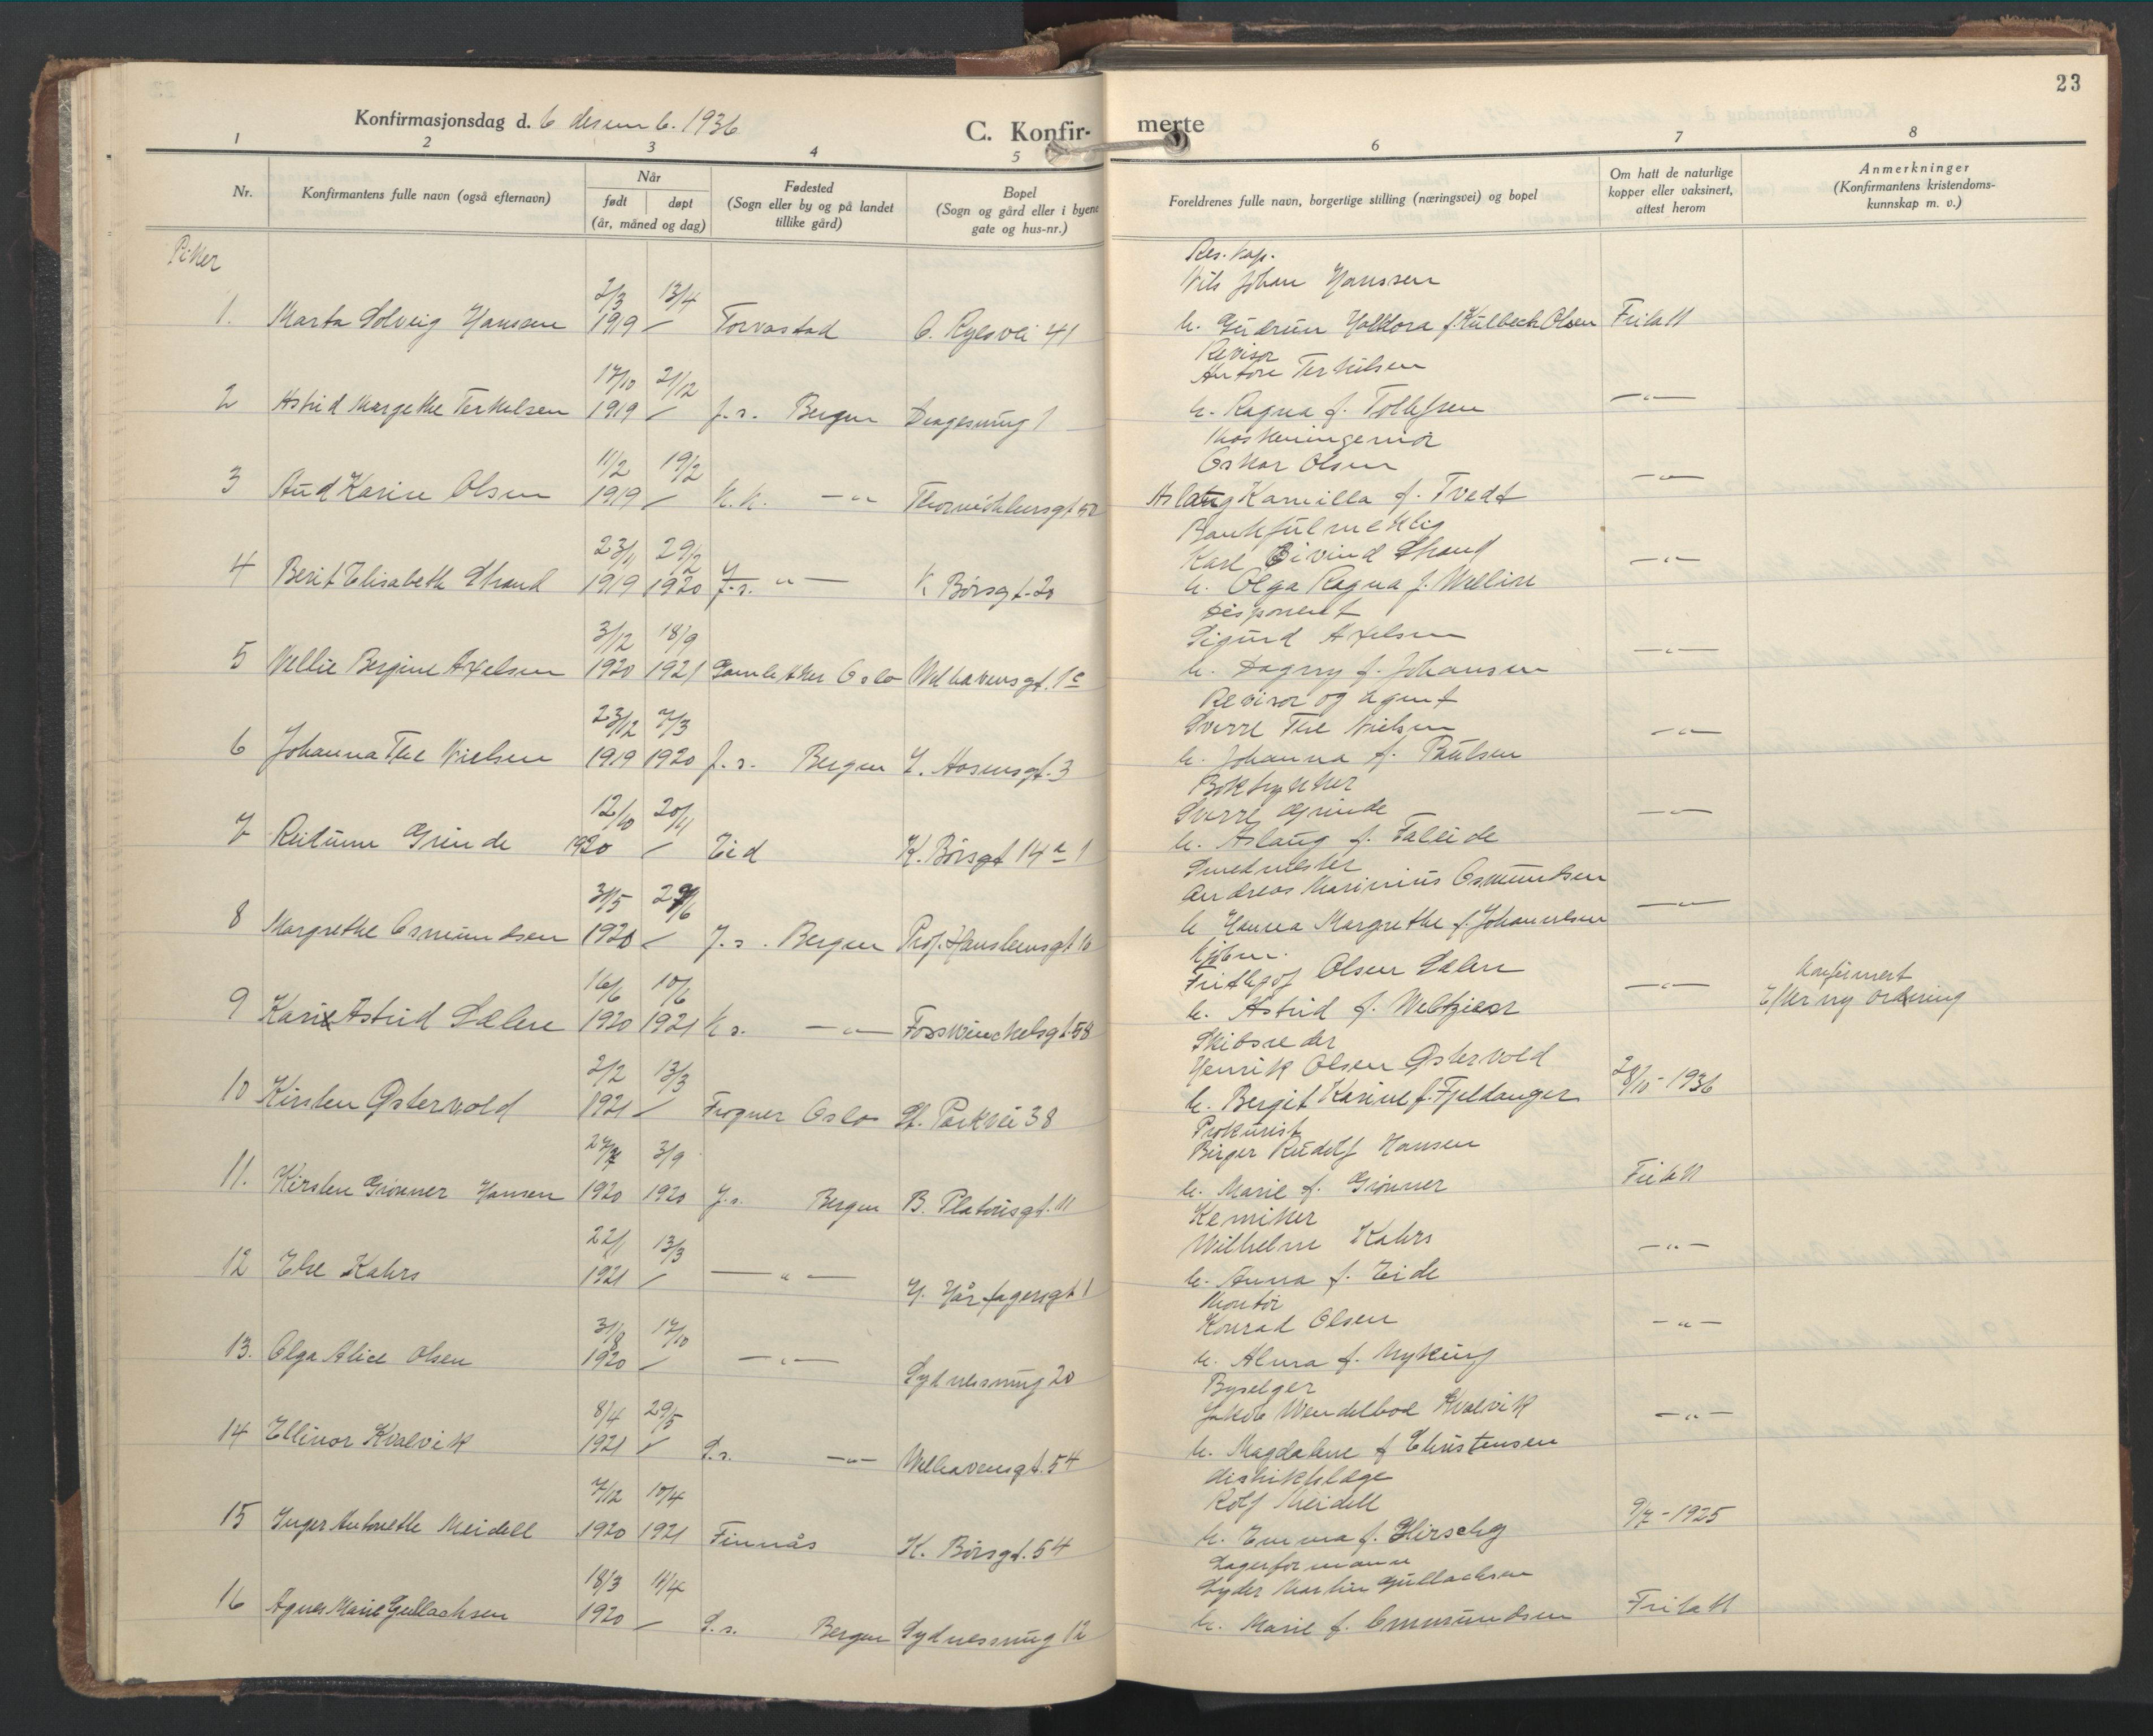 23
Konfirmasjonsdag d. 6 desemb. 1936
C. Konfir-
merte
1 2 3 4 5 6 7 8
Nr.
Konfirmantens fulle navn (også efternavn)
Når
født døpt
(år, måned og dag)
Fødested
(Sogn eller by og på landet
tillike gård)
Bopel
(Sogn og gård eller i byen
gate og hus-nr.)
Foreldrenes fulle navn, borgerlige stilling (næringsvei) og bopel
Om hatt de naturlige
kopper eller vaksinert,
attest herom
Anmerkninger
(Konfirmantens kristendoms-
kunnskap m. v.)
Piker
Res. kap.
Nils Johan Hanssen
2/3 13/4
1. Marta Solveig Hanssen 1919 / Torvastad C. Ryesvei 41 h. Gudrun Halldora f. Kulbeck Olsen Fritatt
Revisor
Antøre Terkelsen
17/10 21/12
2 Astrid Margethe Terkelsen 1919 / J. s. Bergen Dragesmug 1 h. Ragna f. Tollefsen —"—
Maskiningeniør
Oskar Olsen
11/2 19/2
3 Aud Karine Olsen 1919 / K.K. —"— Thormøhlensgt 50 Aslaug Kamilla f. Tvedt —"—
Bankfullmektig
Karl Eivind Strand
23/11 29/2
4 Berit Elisabeth Strand 1919 1920 J. s. —"— K Børsgt. 20 h. Olga Ragna f. Melline —"—
Disponent
Sigurd Axelsen
3/12 18/9
5 Nellie Bergine Axelsen 1920 1921 Gamle Aker Oslo Welhavensgt. 1c h. Dagny f. Johansen —"—
Revisor og agent
Sverre The Nielsen
23/12 7/3
6 Johanna The Nielsen 1919 1920 J. s. Bergen I. Aasensgt. 3 h. Johanna f. Paulsen —"—
Boktrykker
Sverre Grinde
12/10 20/11
7 Reidunn Grinde 1920 / Eid K. Børsgt 14a 1 h. Aslaug f. Faleide —"—
Smedmester
Andreas Marinius Osmundsen
31/5 29/6
8 Margrethe Osmundsen 1920 / J. s. Bergen Prof. Hansteensgt 10 h Hanna Margrethe f. Johannesen —"—
Kjøbm.
Frithjof Olsen Sælen
16/6 10/6
9 Kari Astrid Sælen 1920 1921 K s. —"— Fosswinckelsgt. 58 h. Astrid f. Weltzien —"— Konfirmert
Efter ny ordning
Skibsreder
Henrik Olsen Østervold
2/2 13/3
10 Kirsten Østervold 1921 / Frogner Oslo St. Parkvei 38 h. Bergit Karine f. Fjeldanger 28/10-1936
Prokurist
Birger Rudolf Hansen
27/7 3/9
11. Kirsten Grønner Hansen 1920 1920 J. s. Bergen B. Platousgt. 11 h. Marie f. Grønner Fritatt
Kemiker
Wilhelm Kahrs
22/1 13/3
12 Else Kahrs 1921 / —"— H. Hårfagersgt 1 h. Anna f. Eide —"—
Montør
Konrad Olsen
31/8 17/10
13. Olga Alice Olsen 1920 / —"— Sydnessmug 20 h. Alma f. Myking —"—
Byselger
Jakob Wendelboe Kvalvik
8/4 29/5
14 Ellinor Kvalvik 1921 / S. s. —"— Welhavensgt. 54 h. Magdalene f Christensen —"—
distriktslæge
Rolf Meidell
7/12 10/4
15 Inger Antonette Meidell 1920 1921 Finnås K. Børsgt. 54 h. Emma f. Hirschg 9/7-1925
Lagerformann
Lyder Martin Gullachsen
18/3 11/4
16 Agnes Marie Gullachsen 1920 / S. s. Bergen Sydnessmug 12 h. Marie f. Ommundsen Fritatt